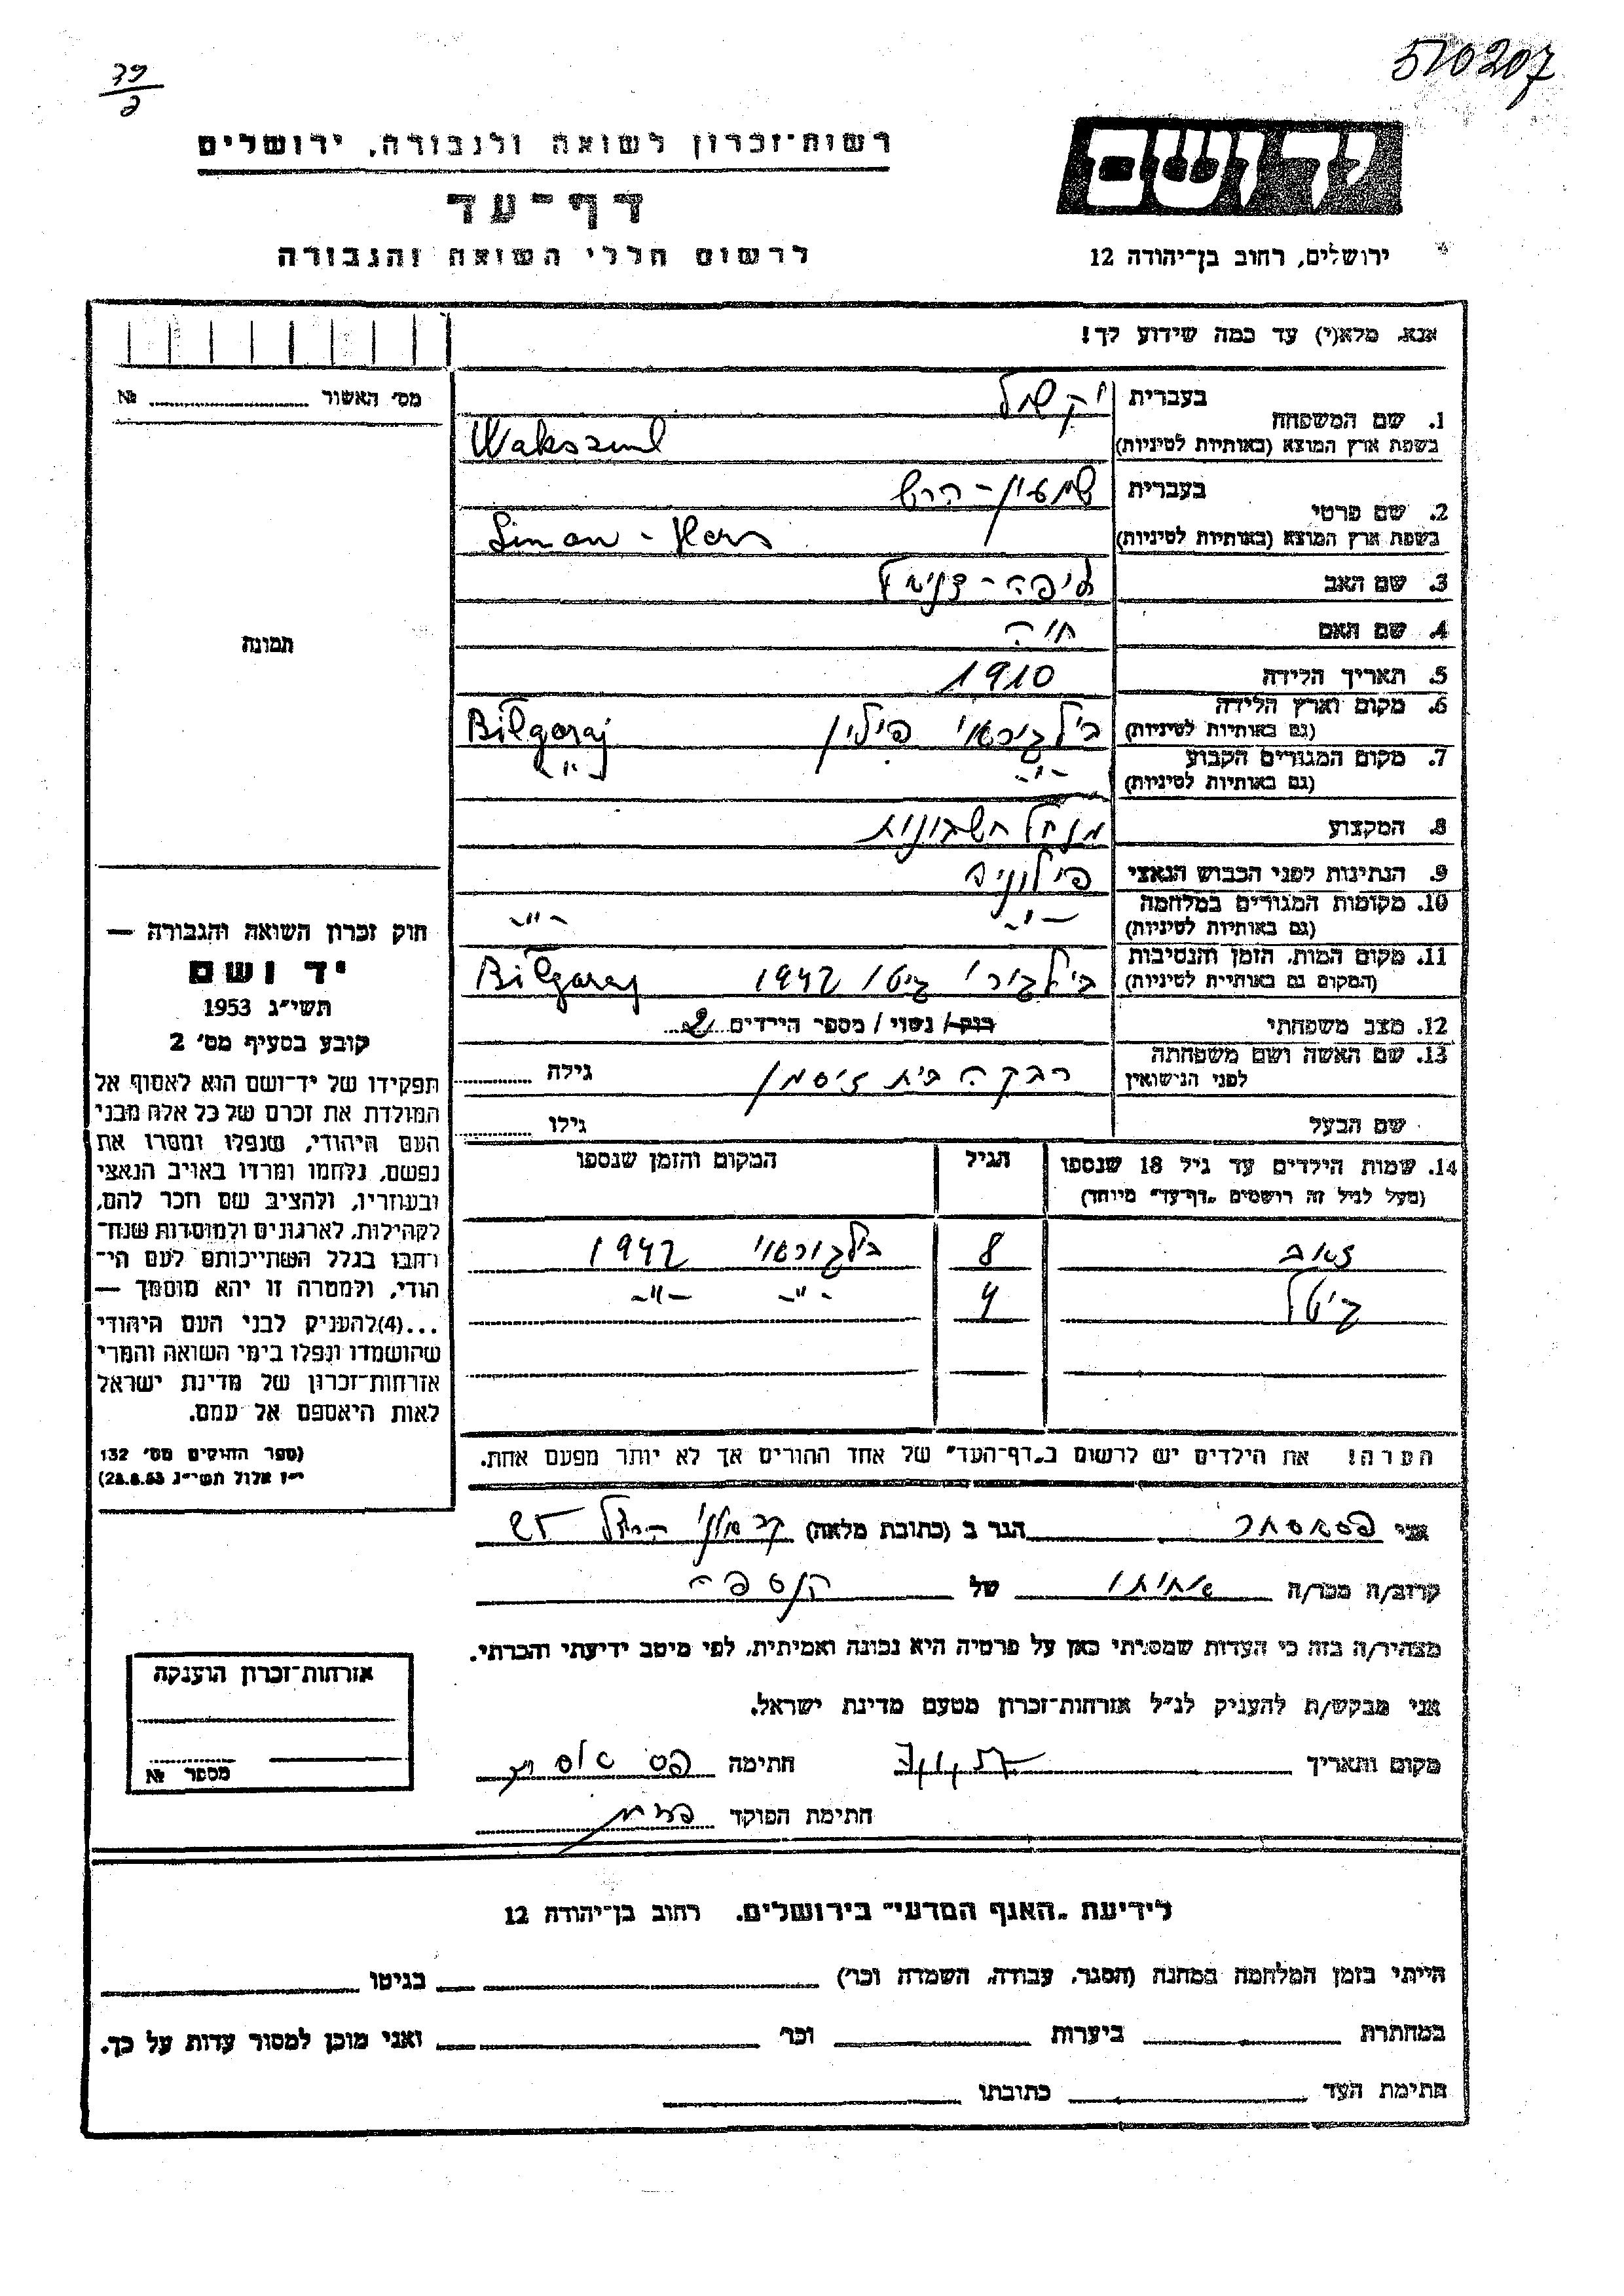 510207
39
2
יד ושם
רשות־זכרון לשואה ולגבורה, ירושלים
דף־עד
לרשום חללי השואה והגבורה
ירושלים, רחוב בן־יהודה 12
אנא, מלא(י) עד כמה שידוע לך!
מס׳ האשור № 
1. שם המשפחה
בעברית
בשפת ארץ המוצא (באותיות לטיניות) Wakszul
2. שם פרטי
בעברית שמעון - הרש
בשפת ארץ המוצא (באותיות לטיניות) Simon - Hers
3. שם האב
4. שם האם חיה
5. תאריך הלידה 1910
6. מקום וארץ הלידה בילגוראי פולין Bilgoraj
(גם באותיות לטיניות)
7. מקום המגורים הקבוע -"- -"-
(גם באותיות לטיניות)
8. המקצוע מנהל חשבונות
9. הנתינות לפני הכבוש הנאצי פולונית
10. מקומות המגורים במלחמה -"- -"-
(גם באותיות לטיניות)
11. מקום המות, הזמן והנסיבות 1942 Bilgoraj
(המקום גם באותיות לטיניות)
12. מצב משפחתי רווק / נשוי / מספר הילדים 2
13. שם האשה ושם משפחתה רבקה בית זיסמן גילה
לפני הנישואין
שם הבעל גילו
תמונה
חוק זכרון השואה והגבורה —
יד ושם
תשי״ג 1953
קובע בסעיף מס׳ 2
תפקידו של יד־ושם הוא לאסוף אל
המולדת את זכרם של כל אלה מבני
העם היהודי, שנפלו ומסרו את
נפשם, נלחמו ומרדו באויב הנאצי
ובעוזריו, ולהציב שם וזכר להם,
לקהילות, לארגונים ולמוסדות שנח־
רבו בגלל השתייכותם לעם הי־
הודי, ולמטרה זו יהא מוסמך —
...(4)להעניק לבני העם היהודי
שהושמדו ונפלו בימי השואה והמרי
אזרחות־זכרון של מדינת ישראל
לאות היאספם אל עמם.
(ספר החוקים מס׳ 132
י״ז אלול תשי״ג 28.8.53)
14. שמות הילדים עד גיל 18 שנספו הגיל המקום והזמן שנספו
(מעל לגיל זה רושמים „דף־עד״ מיוחד)
זאב 8 בילגוראי 1942
גיטל 4 -"- -"-
הערה! את הילדים יש לרשום ב„דף־העד״ של אחד ההורים אך לא יותר מפעם אחת.
אני הגר ב (כתובת מלאה)
קרוב/ה מכר/ה אחותו של הנספה
מצהיר/ה בזה כי העדות שמסרתי כאן על פרטיה היא נכונה ואמיתית, לפי מיטב ידיעתי והכרתי.
אני מבקש/ת להעניק לנ״ל אזרחות־זכרון מטעם מדינת ישראל.
מקום ותאריך חתימה
חתימת הפוקד
אזרחות־זכרון הוענקה
מספר №
לידיעת „האגף המדעי״ בירושלים, רחוב בן־יהודה 12
הייתי בזמן המלחמה במחנה (הסגר, עבודה, השמדה וכו׳) בגיטו
במחתרת ביערות וכו׳ ואני מוכן למסור עדות על כך.
חתימת העד כתובתו